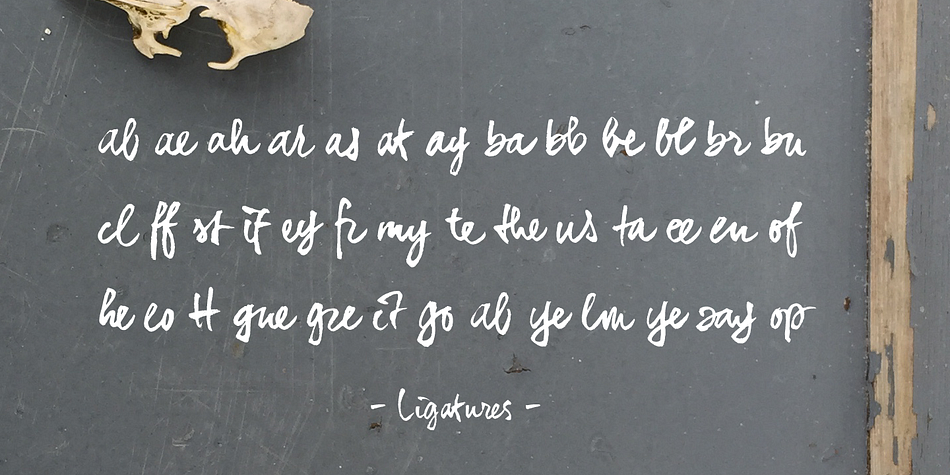 ab ae ah ar as at ay ba bb be bl br bu
cl ff st if ey fr my te the us ta ee en of
he eo tt gue gre it go ab ye lm ye say op
- Ligatures -